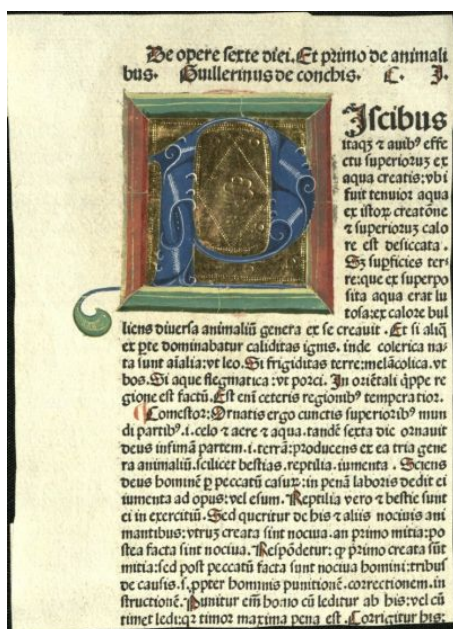 De opere sexte diei. Et primo de animali
bus. Guillerinus de conchis. C. I.
P
Iscibus
itaqꝫ ⁊ auibꝰ effe
ctu superioꝝ ex
aqua creatis: vbi
fuit tenuior aqua
ex istoꝝ creatōne
⁊ superioꝝ calo
re est desiccata.
Sꝫ supficies ter-
re: que ex superpo
sita aqua erat lu
tosa: ex calore bul
liens diuersa animaliū genera ex se creauit. Et si aliq̄
ex pte dominabatur caliditas ignis. inde colerica na-
ta sunt aīalia: vt leo. Si frigiditas terre: melācolica. vt
bos. Si aque flegmatica: vt porci. In oriētali qͥppe re
gione est factū. Est enī ceteris regionibꝰ temperatior.
Comestor: Ornatis ergo cunctis superioribꝰ mun
di partibꝰ. i. celo ⁊ aere ⁊ aqua. tandē sexta die ornauit
deus infimā partem. i. terrā: producens ex ea tria gene
ra animaliū. scilicet bestias. reptilia. iumenta. Sciens
deus hominē p peccatū casurū: in penā laboris dedit ei
iumenta ad opus: vel esum. Reptilia vero ⁊ bestie sunt
ei in exercitiū. Sed queritur de his ⁊ aliis nociuis ani
mantibus: vtrū creata sint nociua. an primo mitia: po
stea facta sint nociua. Respōdetur: ꝙ primo creata sūt
mitia: sed post peccatū facta sunt nociua homini: tribus
de causis. s. ppter hominis punitionē. correctionem. in
structionē. Punitur em̄ homo cū leditur ab his: vel cū
timet ledi: qꝛ timor maxima pena est. Corrigitur his: